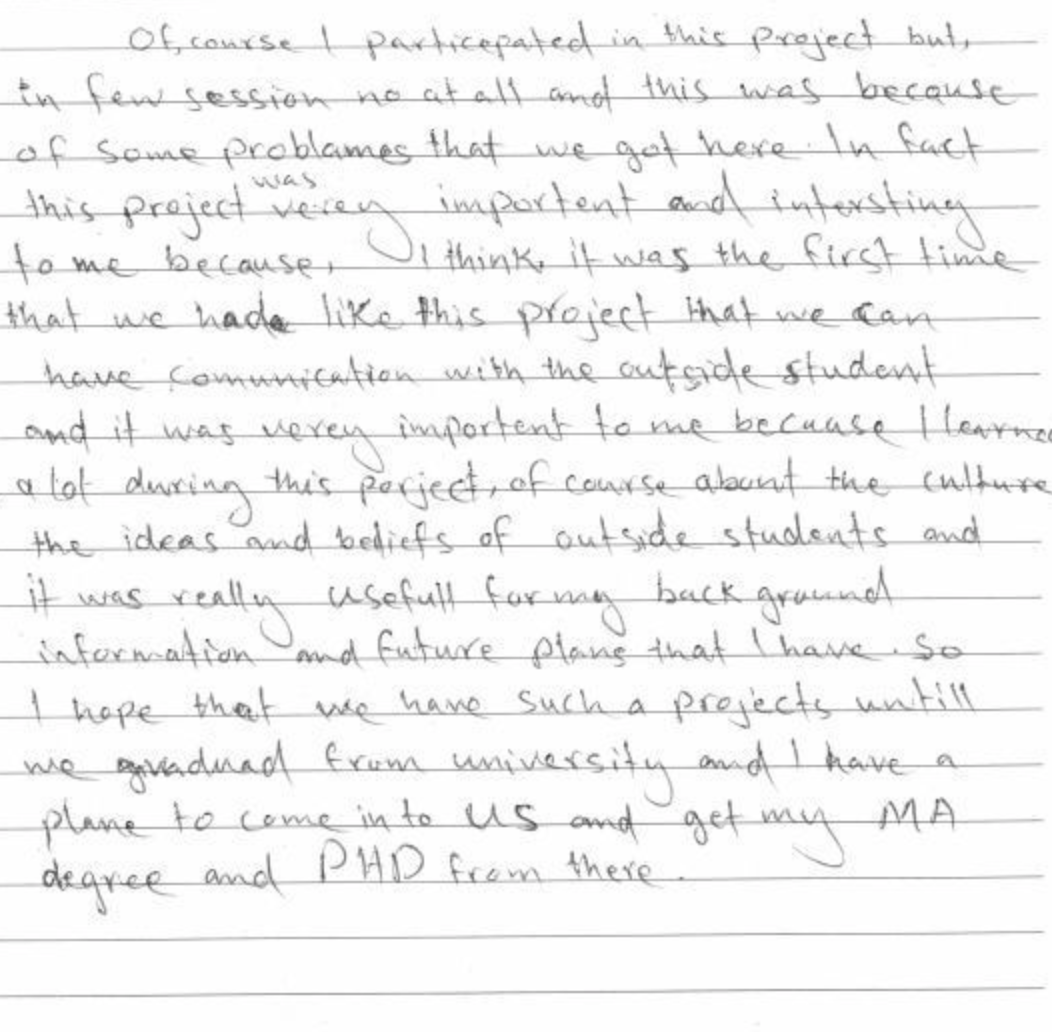 Of, course I particepated in this project but,
in few session no at all and this was because
of some problames that we got here. In fact
this project was verey importent and intersting
to me because, I think, it was the first time
that we hade like this project that we can
have comunication with the outside student
and it was verey importent to me becuase I learned
a lot dwring this porject, of course abount the culture
the ideas and beliefs of outside students and
it was really usefull for my back ground
information and future plans that I have. So
I hope that we have such a projects untill
we graduad from university and I have a
plane to come in to US and get my MA
degree and PHD from there.